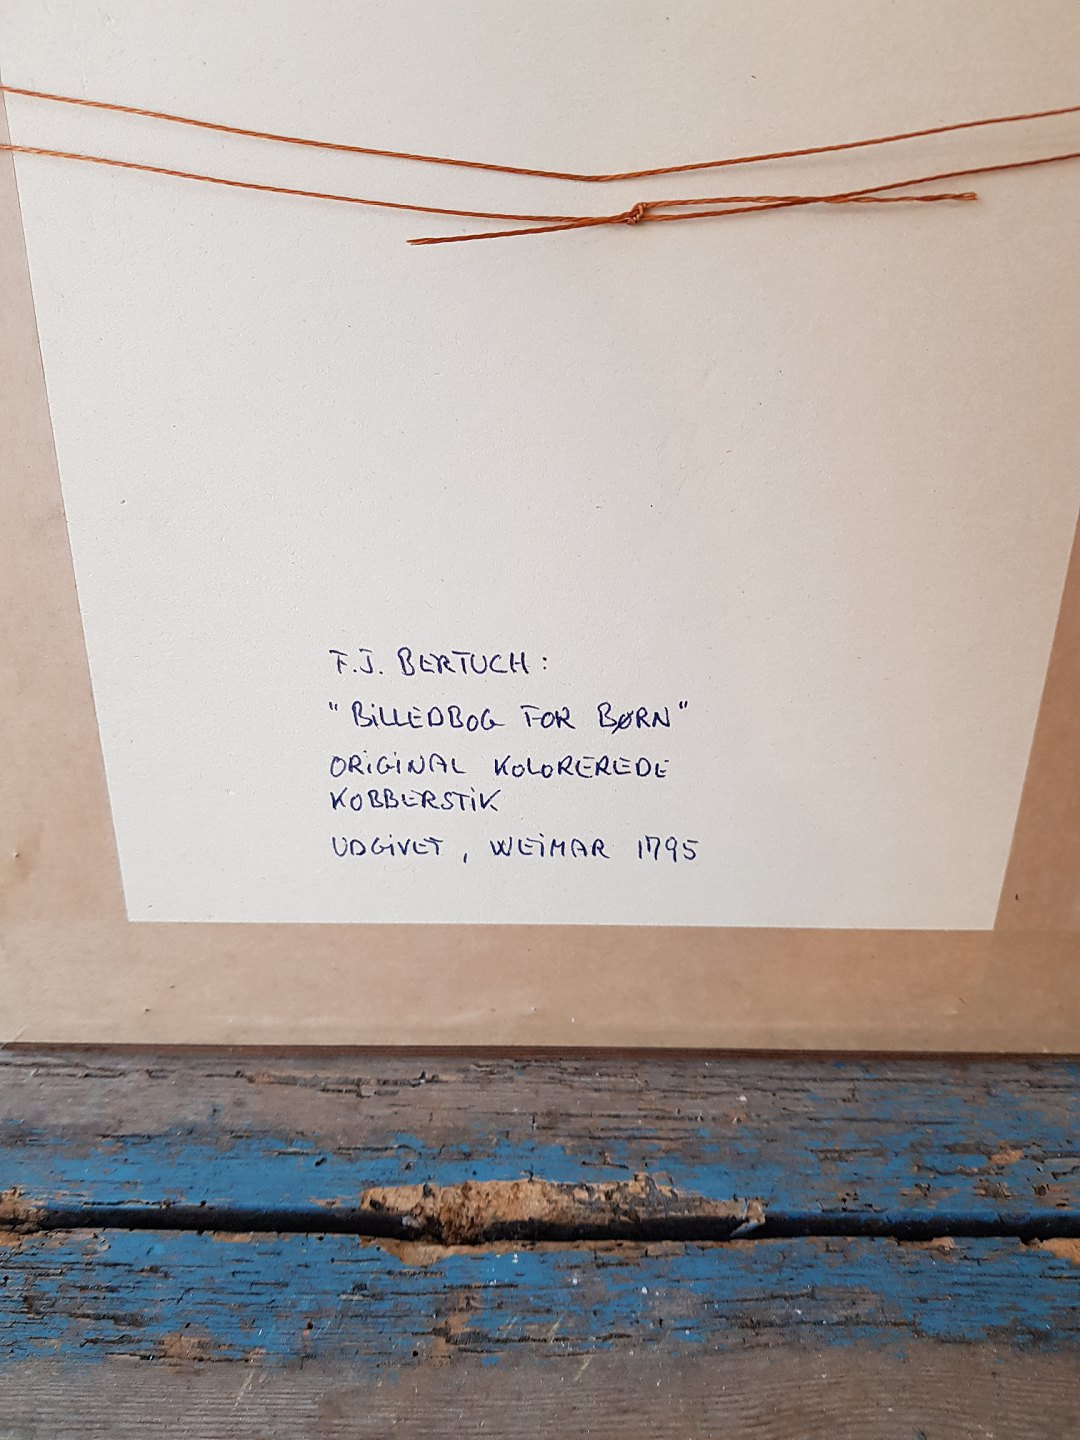 F.J. BERTUCH:
"BILLEDBOG FOR BØRN"
ORIGINAL KOLOREREDE
KOBBERSTIK
UDGIVET, WEIMAR 1795